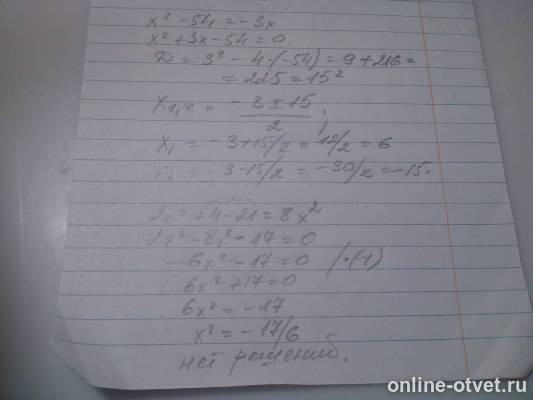 x² - 54 = -3x
x² + 3x - 54 = 0.
D = 3² - 4·(-54) = 9 + 216 =
= 225 = 15²
x₁,₂ = (-3 ± 15)/2 ;
x₁ = -3+15/2 = 12/2 = 6
x₂ = -3-15/2 = -30/2 = -15.
2x² + 4 - 21 = 8x²
2x² - 8x² - 17 = 0
-6x² - 17 = 0 /·(-1)
6x² + 17 = 0
6x² = -17
x² = -17/6
нет решений.
online-otvet.ru